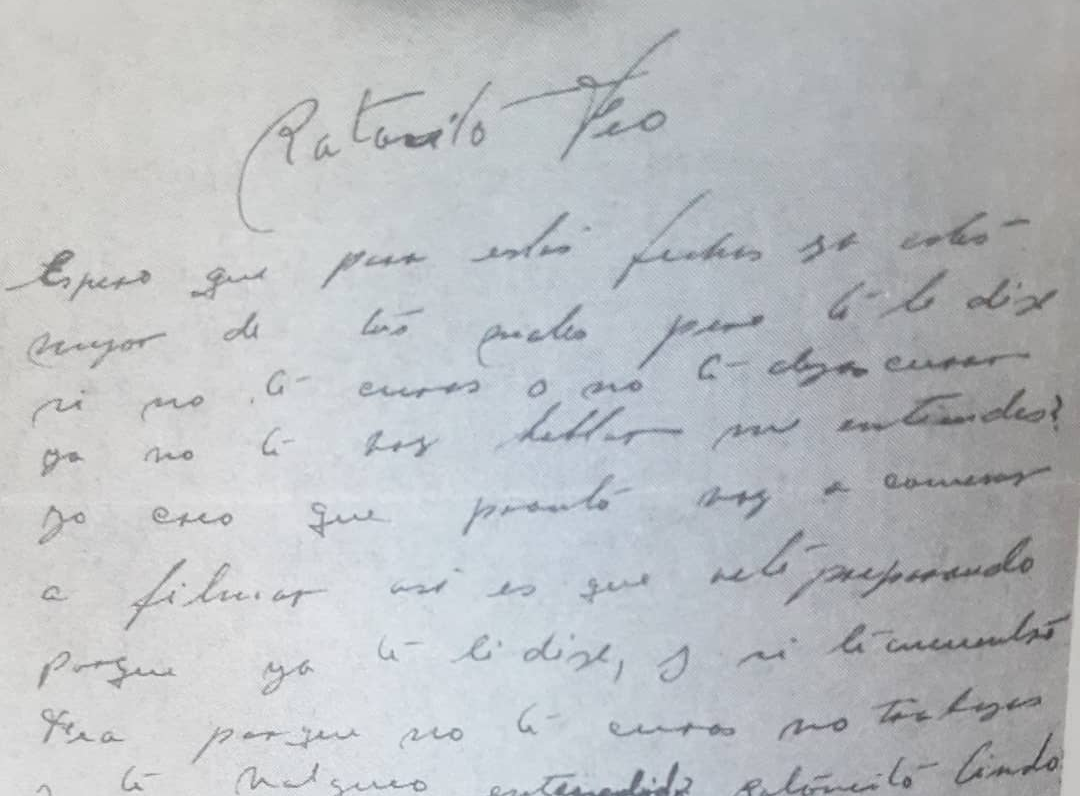 Ratoncito Feo
Espero que para estas fechas ya estés
mejor de tus males pero te lo dije
si no te curas o no te dejas curar
ya no te voy hablar me entiendes?
yo creo que pronto voy a comenzar
a filmar así es que vete preparando
porque ya te lo dije, y si te encuentro
Fea porque no te curas no trabajas
y te nalgueo entendido? ratoncito lindo